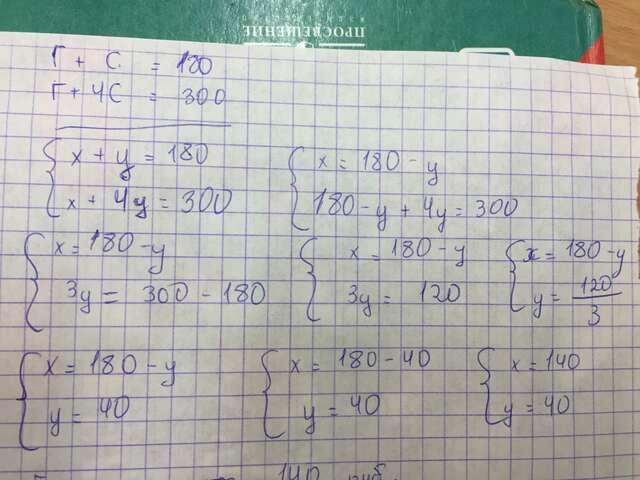 ПРОСВЕЩЕНИЕ
Г + С = 180
Г + 4С = 300
x + y = 180
x + 4y = 300
x = 180 - y
180 - y + 4y = 300
x = 180 - y
3y = 300 - 180
x = 180 - y
3y = 120
x = 180 - y
y = 120/3
x = 180 - y
y = 40
x = 180 - 40
y = 40
x = 140
y = 40
140 руб.